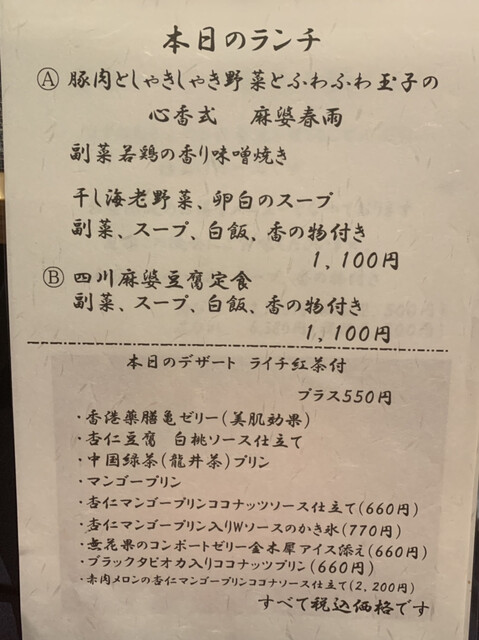 本日のランチ
Ⓐ 豚肉としゃきしゃき野菜とふわふわ玉子の
心香式 麻婆春雨
副菜若鶏の香り味噌焼き
干し海老野菜、卵白のスープ
副菜、スープ、白飯、香の物付き
1,100円
Ⓑ 四川麻婆豆腐定食
副菜、スープ、白飯、香の物付き
1,100円
本日のデザート ライチ紅茶付
プラス550円
・香港薬膳亀ゼリー(美肌効果)
・杏仁豆腐 白桃ソース仕立て
・中国緑茶(龍井茶)プリン
・マンゴープリン
・杏仁マンゴープリンココナッツソース仕立て(660円)
・杏仁マンゴープリン入りWソースのかき氷(770円)
・無花果のコンポートゼリー金木犀アイス添え(660円)
・ブラックタピオカ入りココナッツプリン(660円)
・赤肉メロンの杏仁マンゴープリンココナソース仕立て(2,200円)
すべて税込価格です